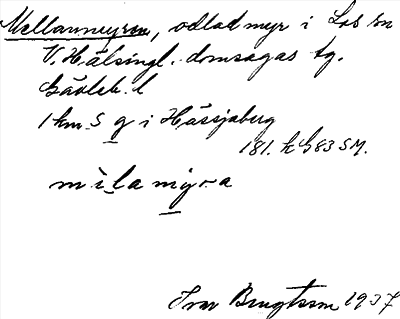 Mellanmyren, odlad myr i Los sn
V. Hälsingl. domsagas tg.
Gävleb. l
1 km S g i Hässjaberg
181. k G83 SM.
mìlamy̆ra
Ivar Bengtsson 1937